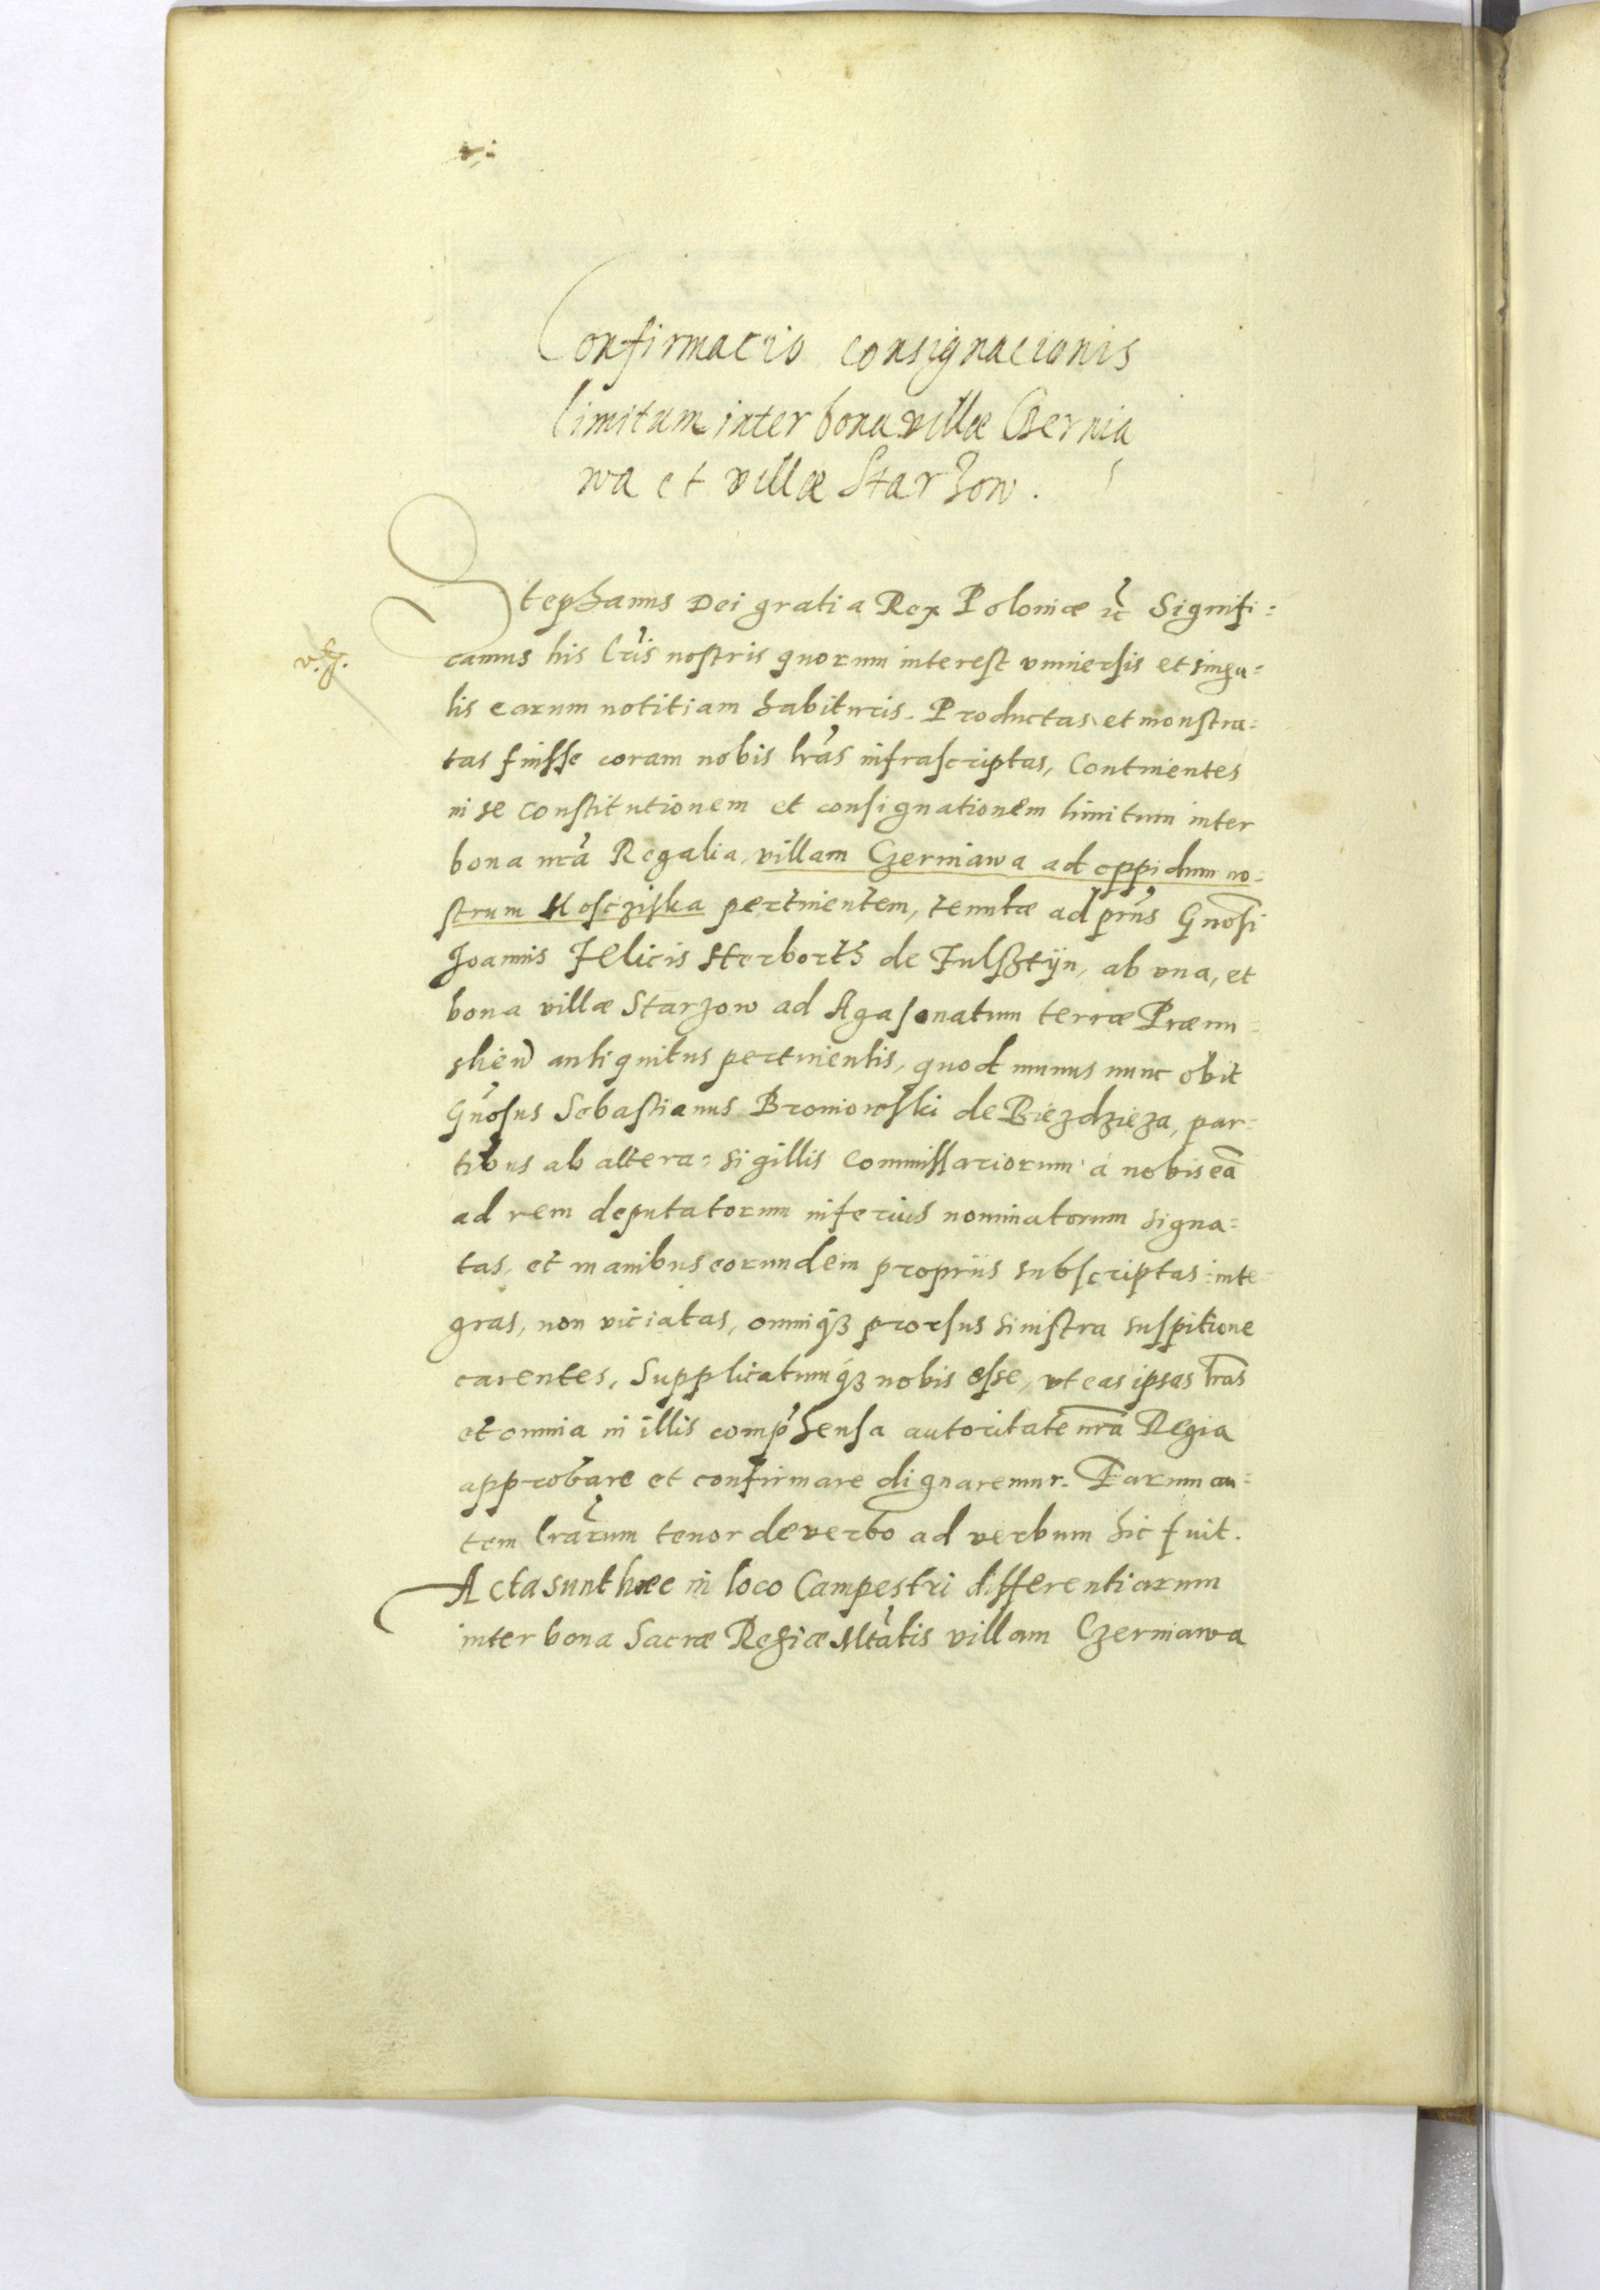 Confirmacio consignacionis
limitum inter bona villæ Czernia
wa et villæ Starzow.
Stephanus Dei gratia Rex Poloniæ ꝛc̃ Signifi:
camus his lr̃is nostris quorum interest vniuersis et singu:
lis earum notitiam habituris. Productas et monstra:
tas fuisse coram nobis lr̃as infrascriptas, Continentes
in se Constitutionem et consignationem limitum inter
bona nr̃a Regalia, villam Czerniawa ad oppidum no:
strum Mosciska pertinentem, tenutæ ad pr̃ns Gnosi
Joannis Felicis Herborth de Fulsztijn, ab vna, et
bona villæ Starzow ad Agasonatum terræ Præmi
slien̄ antiquitus pertinentis, quod munus nunc obit
Gñosus Sebastianus Broniowski de Biezdzieza, par:
tibus ab altera: sigillis Commissariorum à nobis eã
ad rem deputatorum inferius nominatorum signa:
tas, et manibus eorundem proprijs subscriptas: inte
gras, non viciatas, omniqꝫ prorsus sinistra suspitione
carentes, Supplicatumqꝫ nobis esse, vt eas ipsas lr̃as
et omnia in illis comp̃hensa autoritate nr̃a Regia
approbare et confirmare dignaremur. Earum au:
tem lr̃arum tenor de verbo ad verbum hic fuit.
Acta sunt hæc in loco Campestri differentiarum
inter bona Sacræ Regiæ Mt̃atis villam Czerniawa